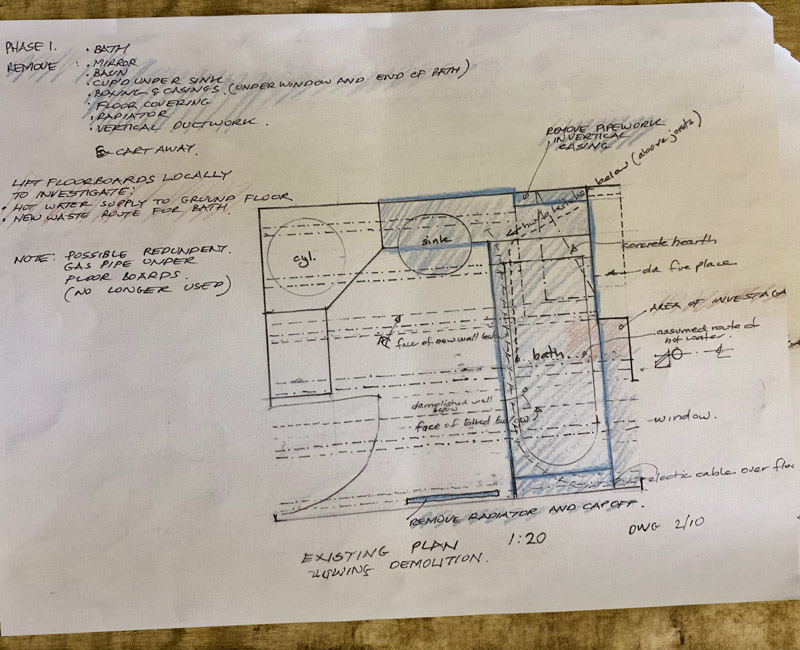 PHASE 1. • BATH
REMOVE : • MIRROR
• BASIN
• CUP'D UNDER SINK
• BOXING & CASINGS (UNDER WINDOW AND END OF BATH)
• FLOOR COVERING
• RADIATOR
• VERTICAL DUCTWORK.
& CART AWAY.
LIFT FLOORBOARDS LOCALLY
TO INVESTIGATE:
• HOT WATER SUPPLY TO GROUND FLOOR
• NEW WASTE ROUTE FOR BATH.
NOTE: POSSIBLE REDUNDENT.
GAS PIPE UNDER
FLOOR BOARDS.
(NO LONGER USED)
REMOVE PIPEWORK
IN VERTICAL
CASING
below (above joists)
cyl.
sink
concrete hearth
old fire place
AREA OF INVESTIGA
assumed route of
hot water
face of new wall
bath
demolished wall
below
face of
window.
electric cable over floo
REMOVE RADIATOR AND CAP OFF.
EXISTING PLAN 1:20
DEMOLITION.
DWG 2/10